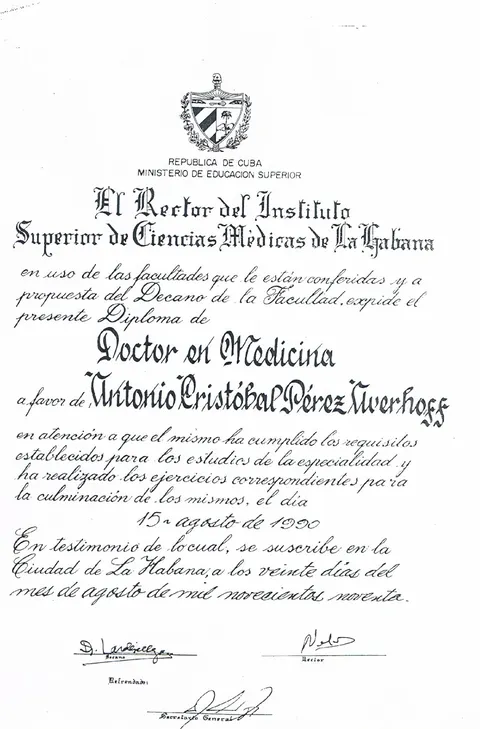 REPUBLICA DE CUBA
MINISTERIO DE EDUCACION SUPERIOR
El Rector del Instituto
Superior de Ciencias Médicas de La Habana
en uso de las facultades que le están conferidas y a
propuesta del Decano de la Facultad, expide el
presente Diploma de
Doctor en Medicina
a favor de Antonio Cristóbal Pérez Averhoff
en atención a que el mismo ha cumplido los requisitos
establecidos para los estudios de la especialidad y
ha realizado los ejercicios correspondientes para
la culminación de los mismos, el día
15 agosto de 1990
En testimonio de lo cual, se suscribe en la
Ciudad de La Habana, a los veinte días del
mes de agosto de mil novecientos noventa.
Decano
Rector
Refrendado:
Secretario General